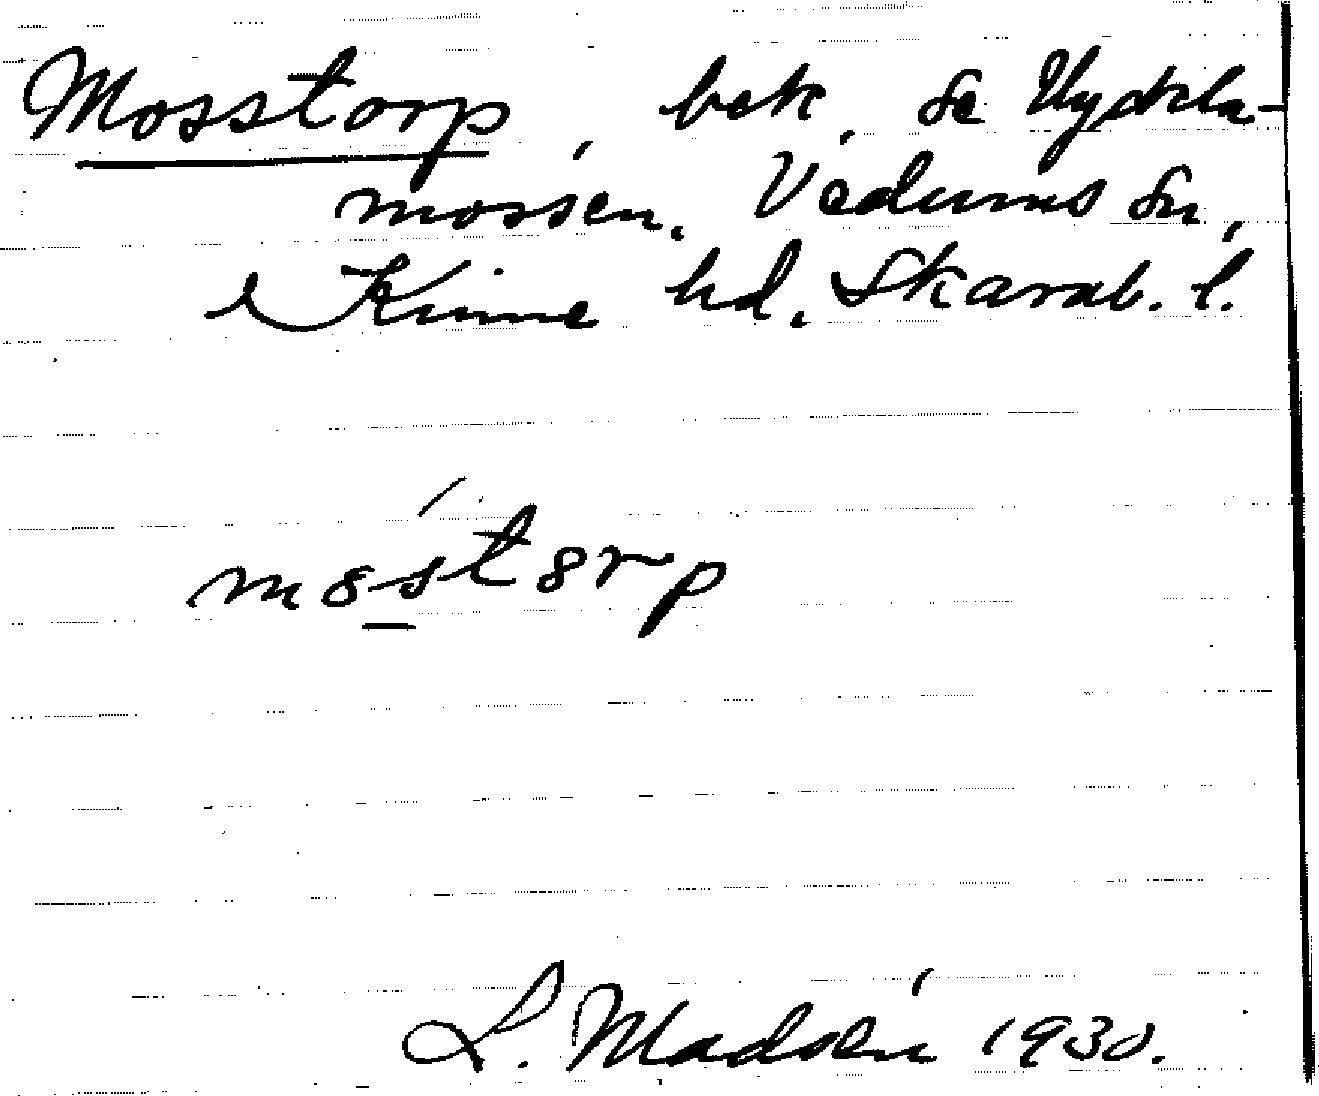 Mosstorp, bek, Se Uydkla-
mossen. Vedums Sn,
Kinne hd. Skarab. l.
mostorp
L. Madsén 1930.